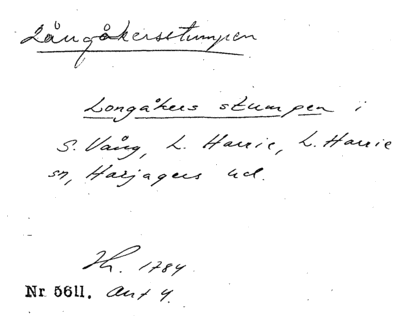 Långåkersstumpen
Longåkers stumpen i
S. Vång, L. Harrie, L. Harrie
sn, Harjagers hd.
Sk. 1784
Nr 5611. Akt 4.